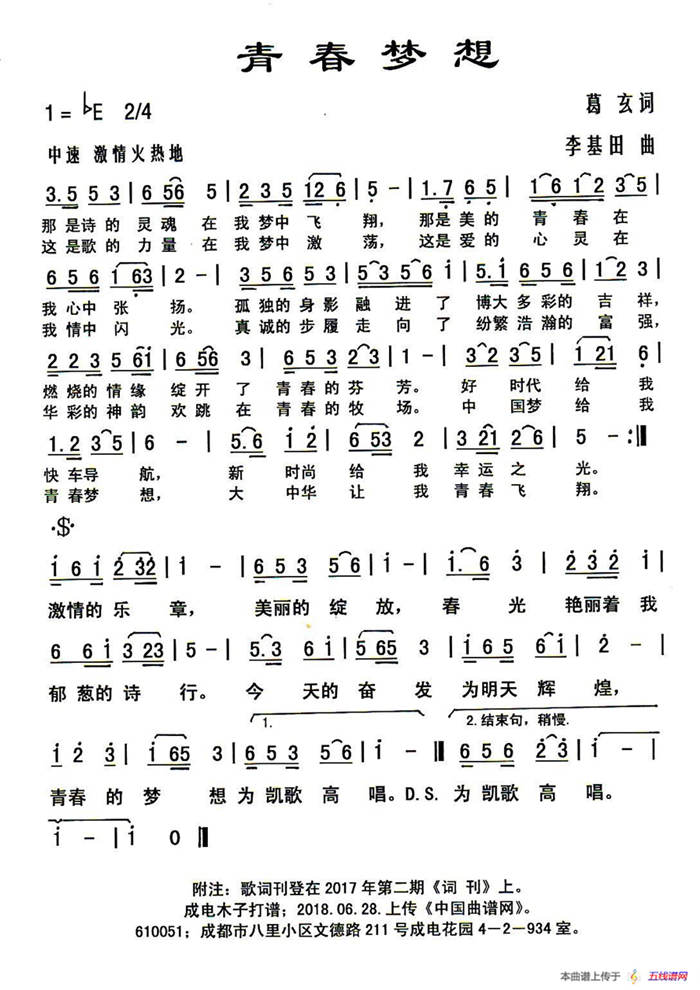 青春梦想
1=♭E 2/4
葛玄词
中速 激情火热地
李基田 曲
3.5 5 3 | 6 56 5 | 2 3 5 12 6 | 5 - | 1.7 6 5 | 1 6 1 2 3 5 |
那是诗的灵魂在我梦中飞翔，那是美的青春在
这是歌的力量在我梦中激荡，这是爱的心灵在
6 5 6 1 63 | 2 - | 2 3 5 3 5 1 | 5 3 5 6 | 5.1 6 5 6 | 3 5 3 |
我心中张扬。孤独的身影融进了博大多彩的吉祥，
我情中闪光。真诚的步履走向了纷繁浩瀚的富强，
2 2 3 5 61 | 6 56 3 | 6 5 3 2 3 | 5 3 2 5 | 1 21 6 |
燃烧的情缘绽开了青春的芬芳。好时代给我
华彩的神韵欢跳在青春的牧场。中国梦给我
1.2 3 5 | 6 - | 5.6 1 2 | 6 53 2 | 3 21 2 6 | 5 - :‖
快车导航，新时尚给我幸运之光。
青春梦想，大中华让我青春飞翔。
·$·
1 6 1 2 32 | 1 - | 6 5 3 5 6 | 1 - | 1.6 3 | 2 3 2 1 |
激情的乐章，美丽的绽放，春光艳丽着我
6 6 1 3 23 | 5 - | 5.3 6 1 | 5 65 3 | 2 3 5 1 6 | 5 - |
郁葱的诗行。今天的奋发为明天辉煌，
1. 2.结束句，稍慢.
1 2 3 | 1 65 3 | 6 5 3 5 6 | 1 - ‖ 6 5 6 2 3 2 | 1 - |
青春的梦想为凯歌高唱。D.S.为凯歌高唱。
1 - | 1 0 ‖
附注：歌词刊登在2017年第二期《词刊》上。
成电木子打谱；2018.06.28.上传《中国曲谱网》。
610051；成都市八里小区文德路211号成电花园4-2-934室。
本曲谱上传于 五线谱网